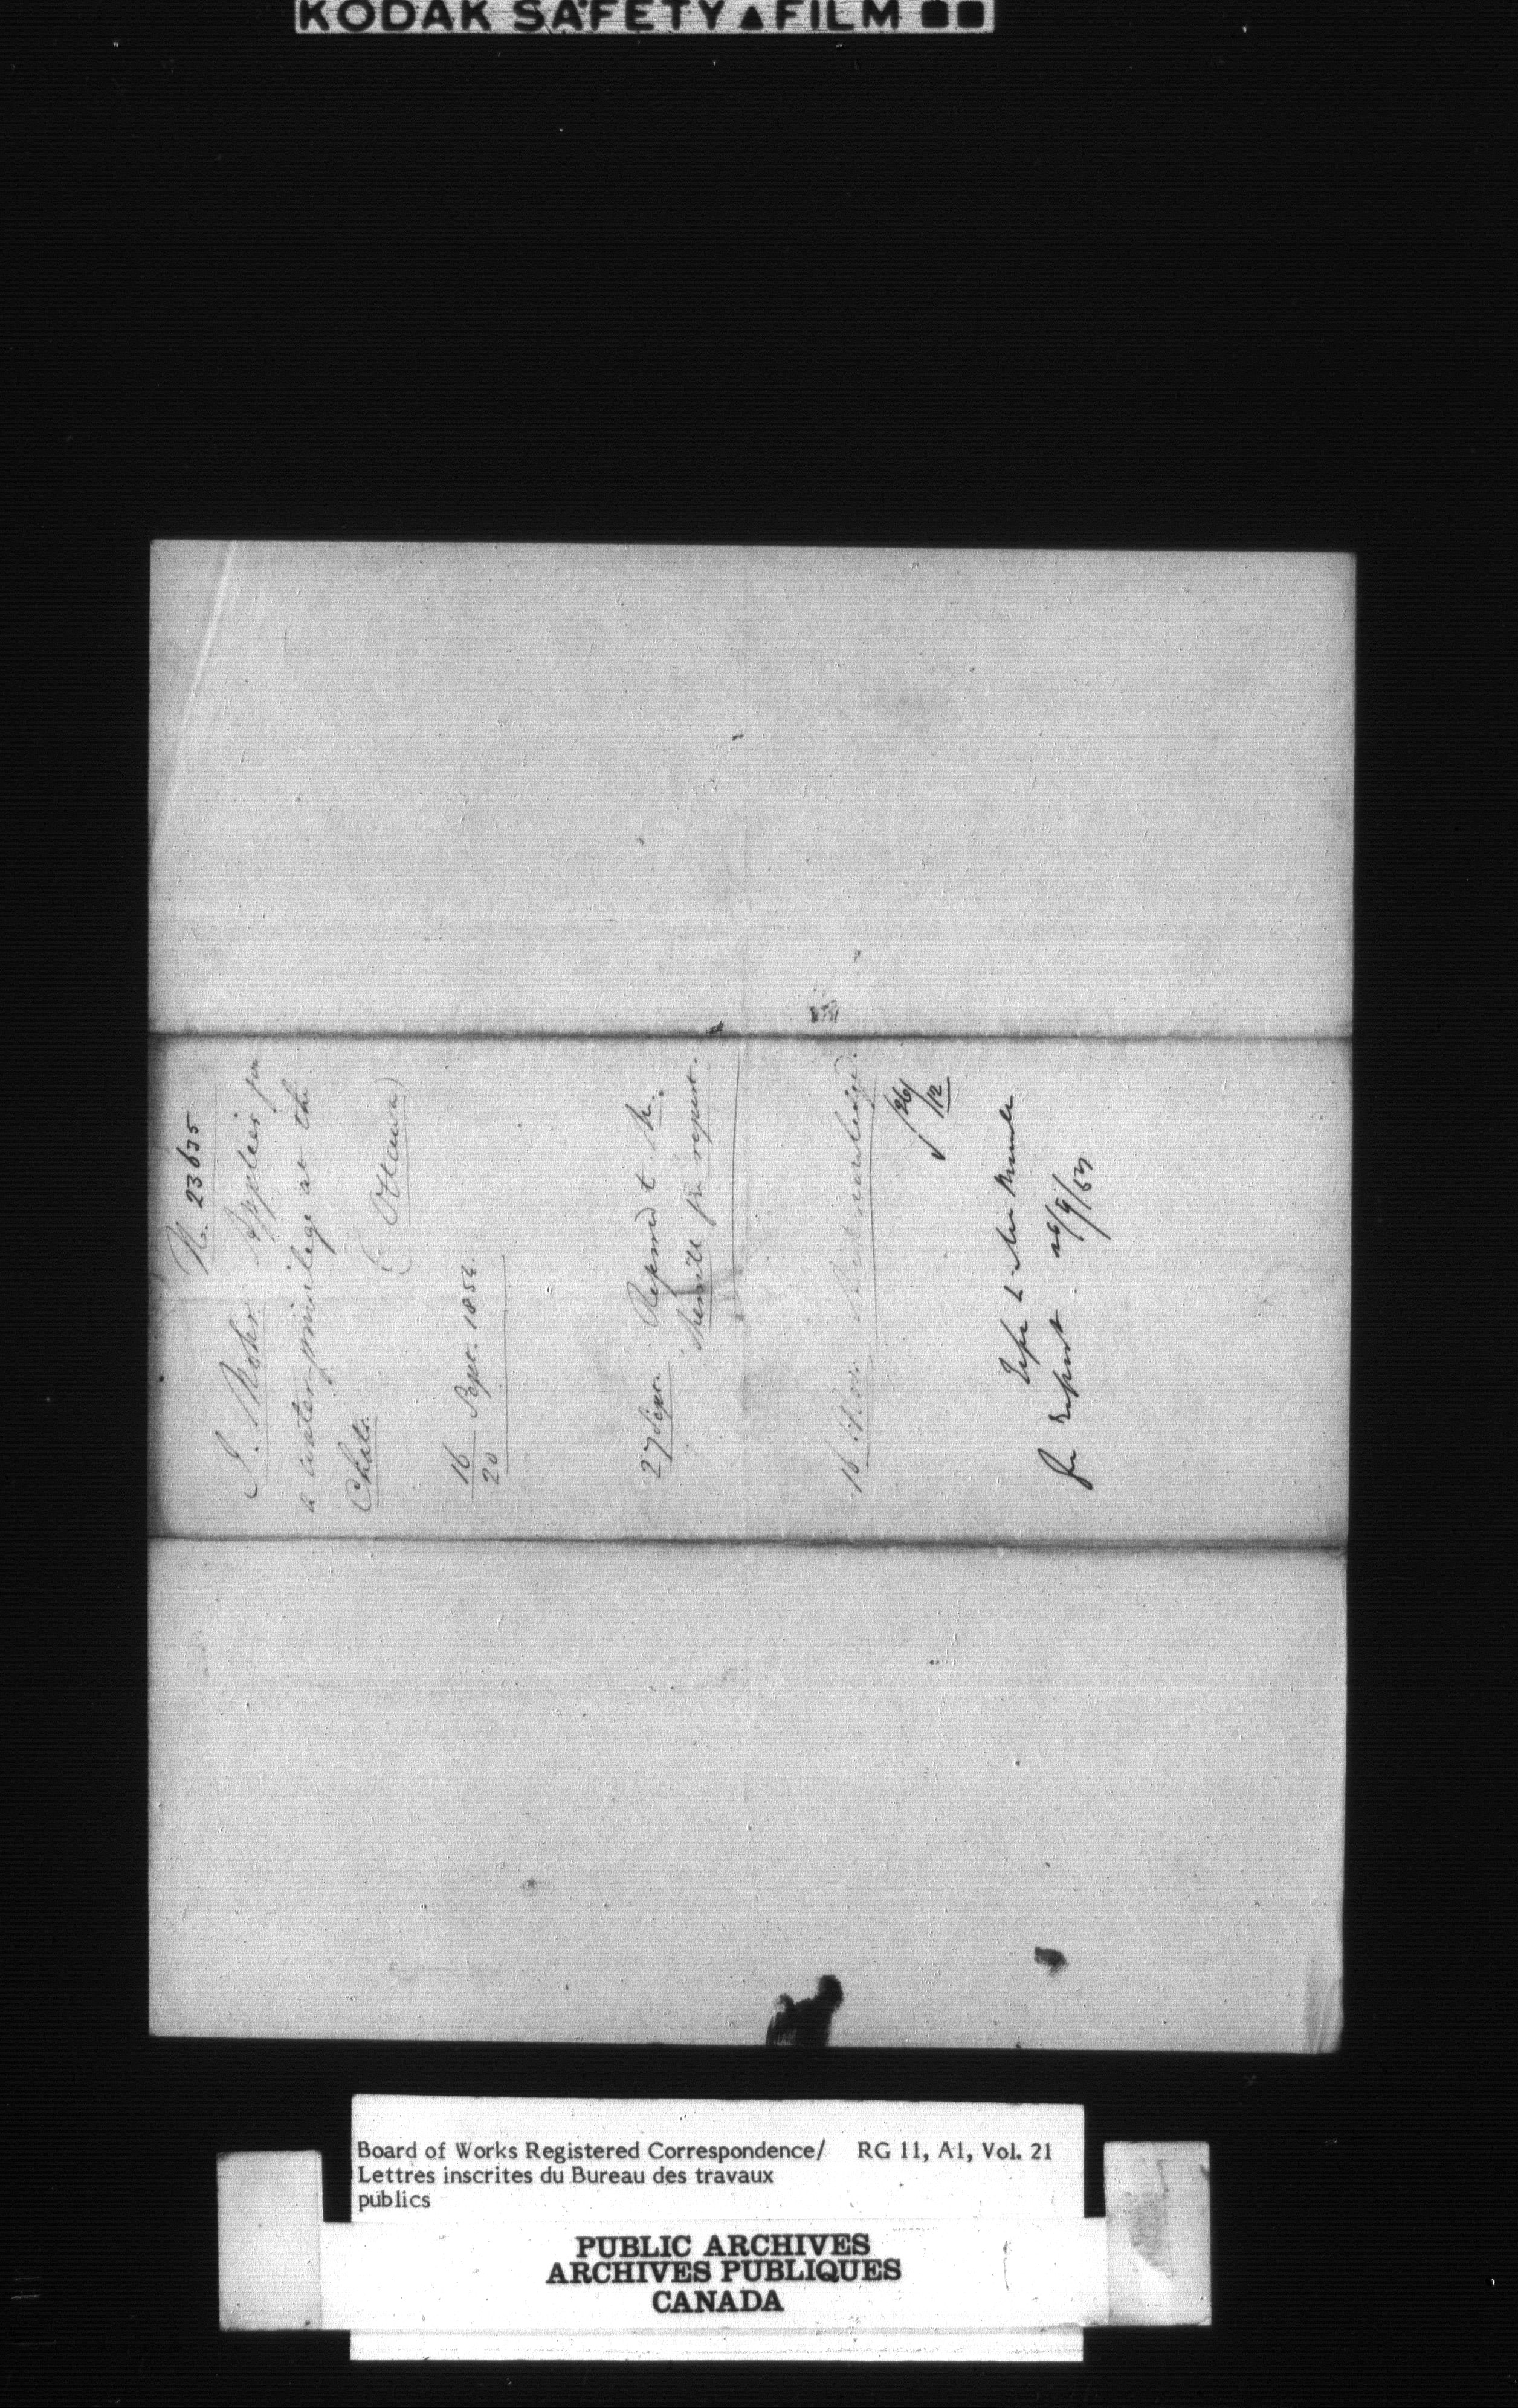 KODAK SAFETY ▲ FILM ■■
No. 23635
J. Mohr Applies for
a water privilege at the
Chats. (Ottawa)
16
20 Sept. 1854.
27 Sept. Referred to Mr.
Merrill for report.
16
26/
12
for report 26/9/54
Board of Works Registered Correspondence/ RG 11, A1, Vol. 21
Lettres inscrites du Bureau des travaux
publics
PUBLIC ARCHIVES
ARCHIVES PUBLIQUES
CANADA